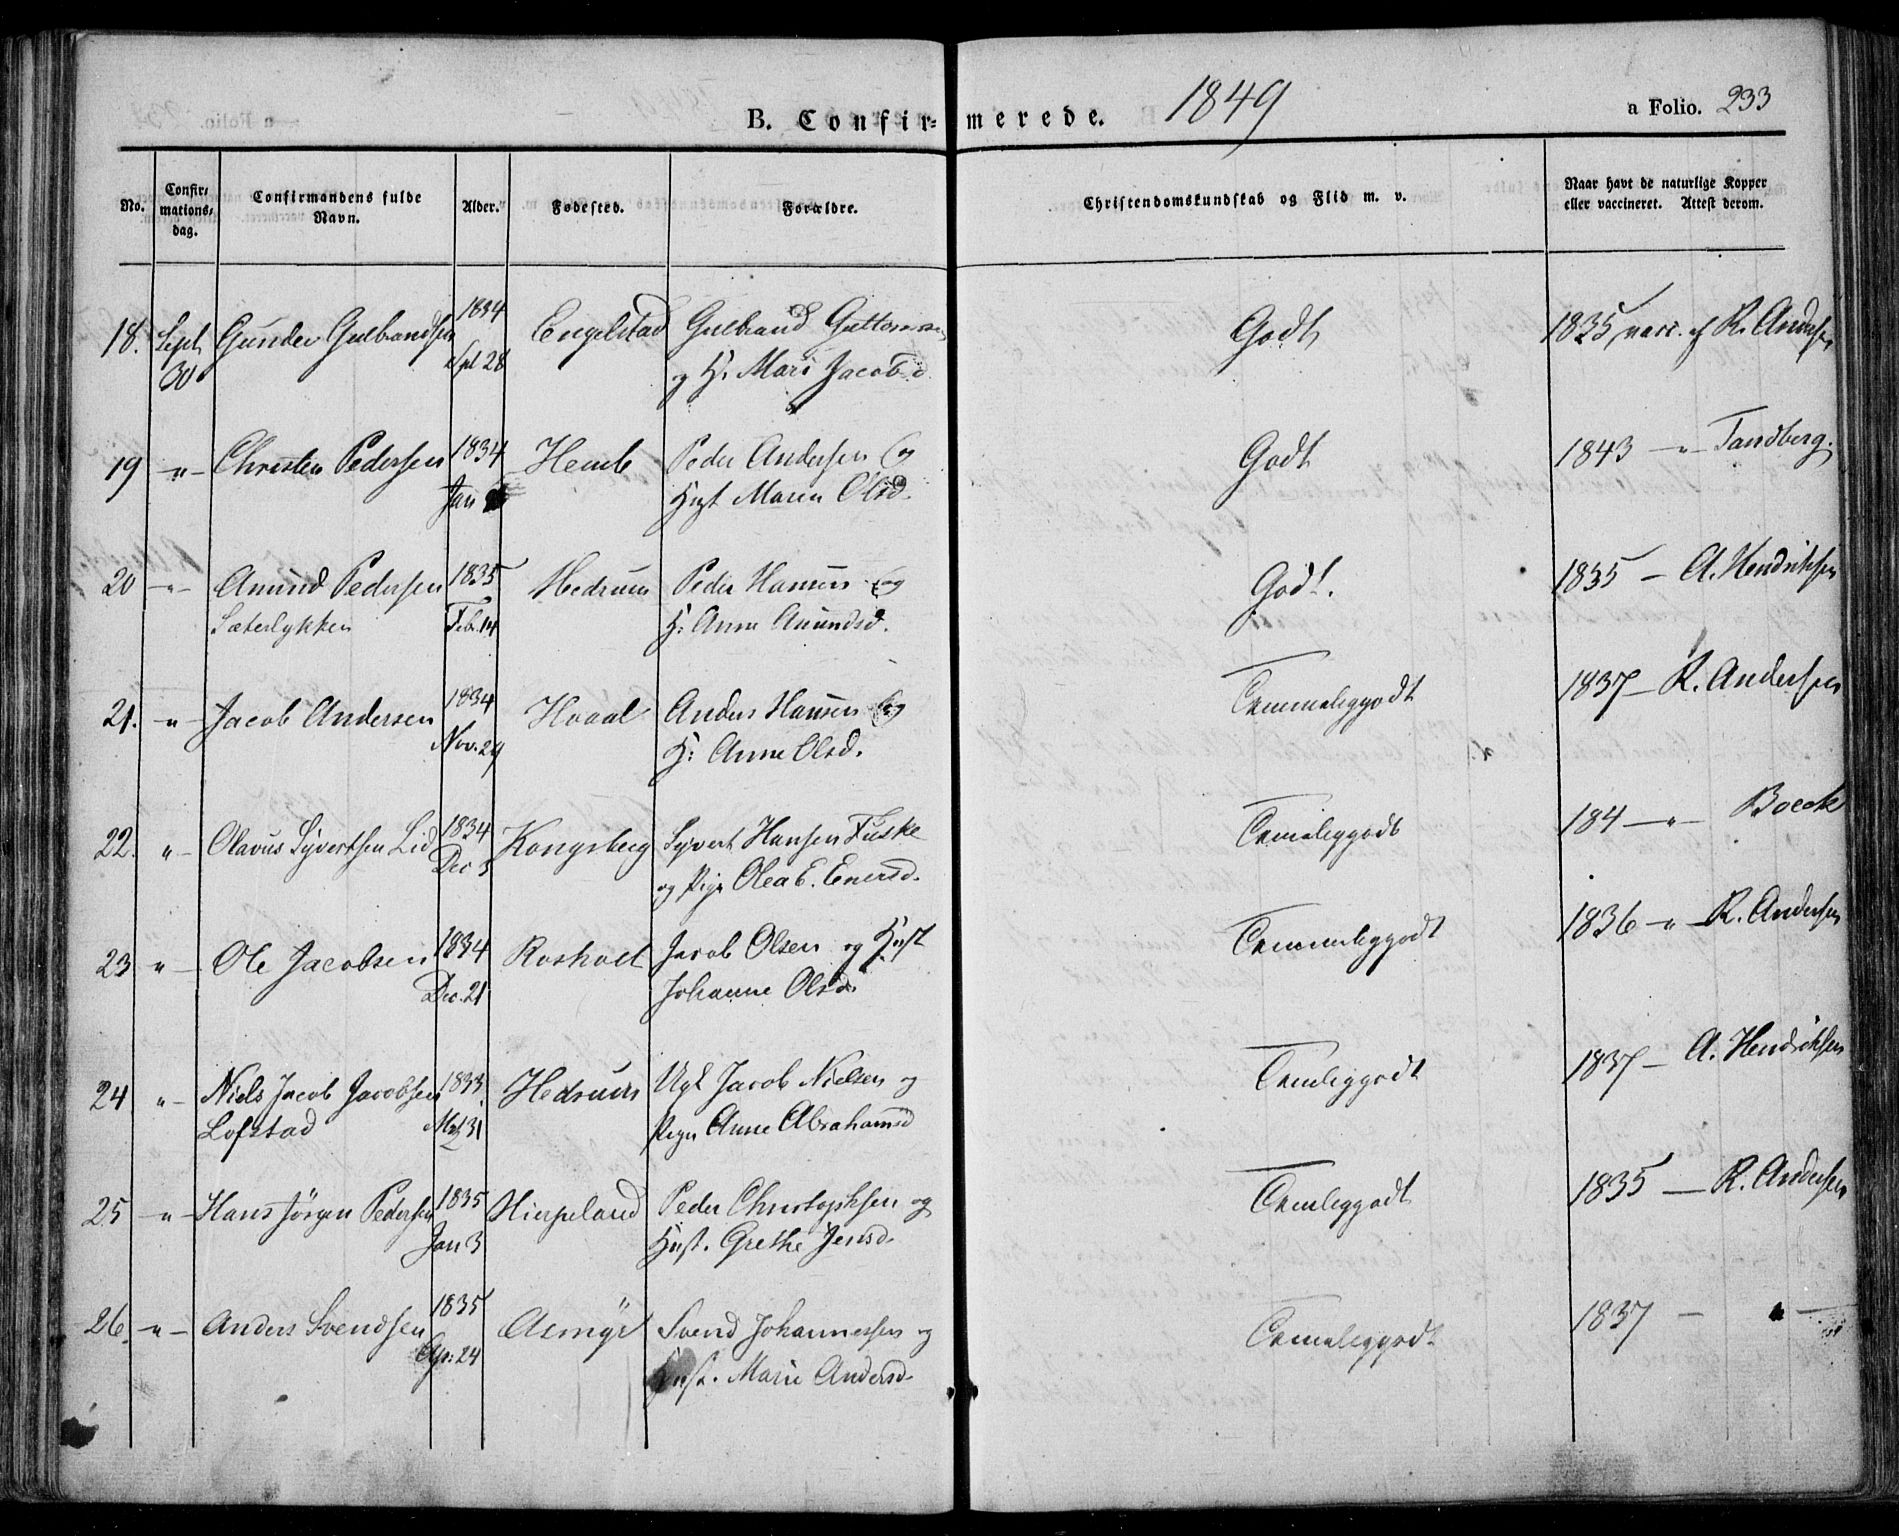 B. Confir-merede. 1849 a Folio. 233
No. Confir-mations-dag. Confirmandens fulde Navn. Alder. Fødested. Forældre. Christendomskundskab og Flid m. v. Naar havt de naturlige Kopper eller vaccineret. Attest derom.
18. Sept. Gunder Gulbrandsen 1834 Engelstad Gulbrand Guttormsen Godt 1835 vacc. af R. Andersen
30 Spt 28 og H. Mari Jacobsd.
19 -"- Christen Pedersen 1834 Hemb Peder Andersen og Godt 1843 -"- Tandberg.
Jan Hust Maren Olsd.
20 -"- Amund Pedersen 1835 Hedrum Peder Hansen og Godt. 1835 - A. Hendriksen
Sæterlykken Feb. 14 H: Anne Amundsd.
21. -"- Jacob Andersen 1834 Hvaal Anders Hansen og Temmeliggodt 1837 - R. Andersen
Nov. 29 H: Anne Olsd.
22. "- Olavus Syvertsen Lid 1834 Kongsberg Syvert Hansen Fuske Temeliggodt 184 -"- Boeck
Dec 5 og Pige Olea E. Enersd.
23 "- Ole Jacobsen 1834 Rosholt Jacob Olsen og Hust Temmeliggodt 1836 -"- R. Andersen
Dec. 21 Johanne Olsd.
24 "- Niels Jacob Jacobsen 1833 Hedrum Ugk Jacob Nielsen og Temliggodt 1837 - A. Hendriksen
Lofstad 31 Pige Anne Abrahamsd
25 -"- Hans Jörgen Pedersen 1835 Hierpeland Peder Christophsen og Temliggodt 1835 - R. Andersen
Jan 3 Hust. Grethe Jensd.
26. -"- Anders Svendsen 1835 Svend Johannessen og Temeliggodt 1837 - " -
Ap: 24 Hust. Marie Andersd.